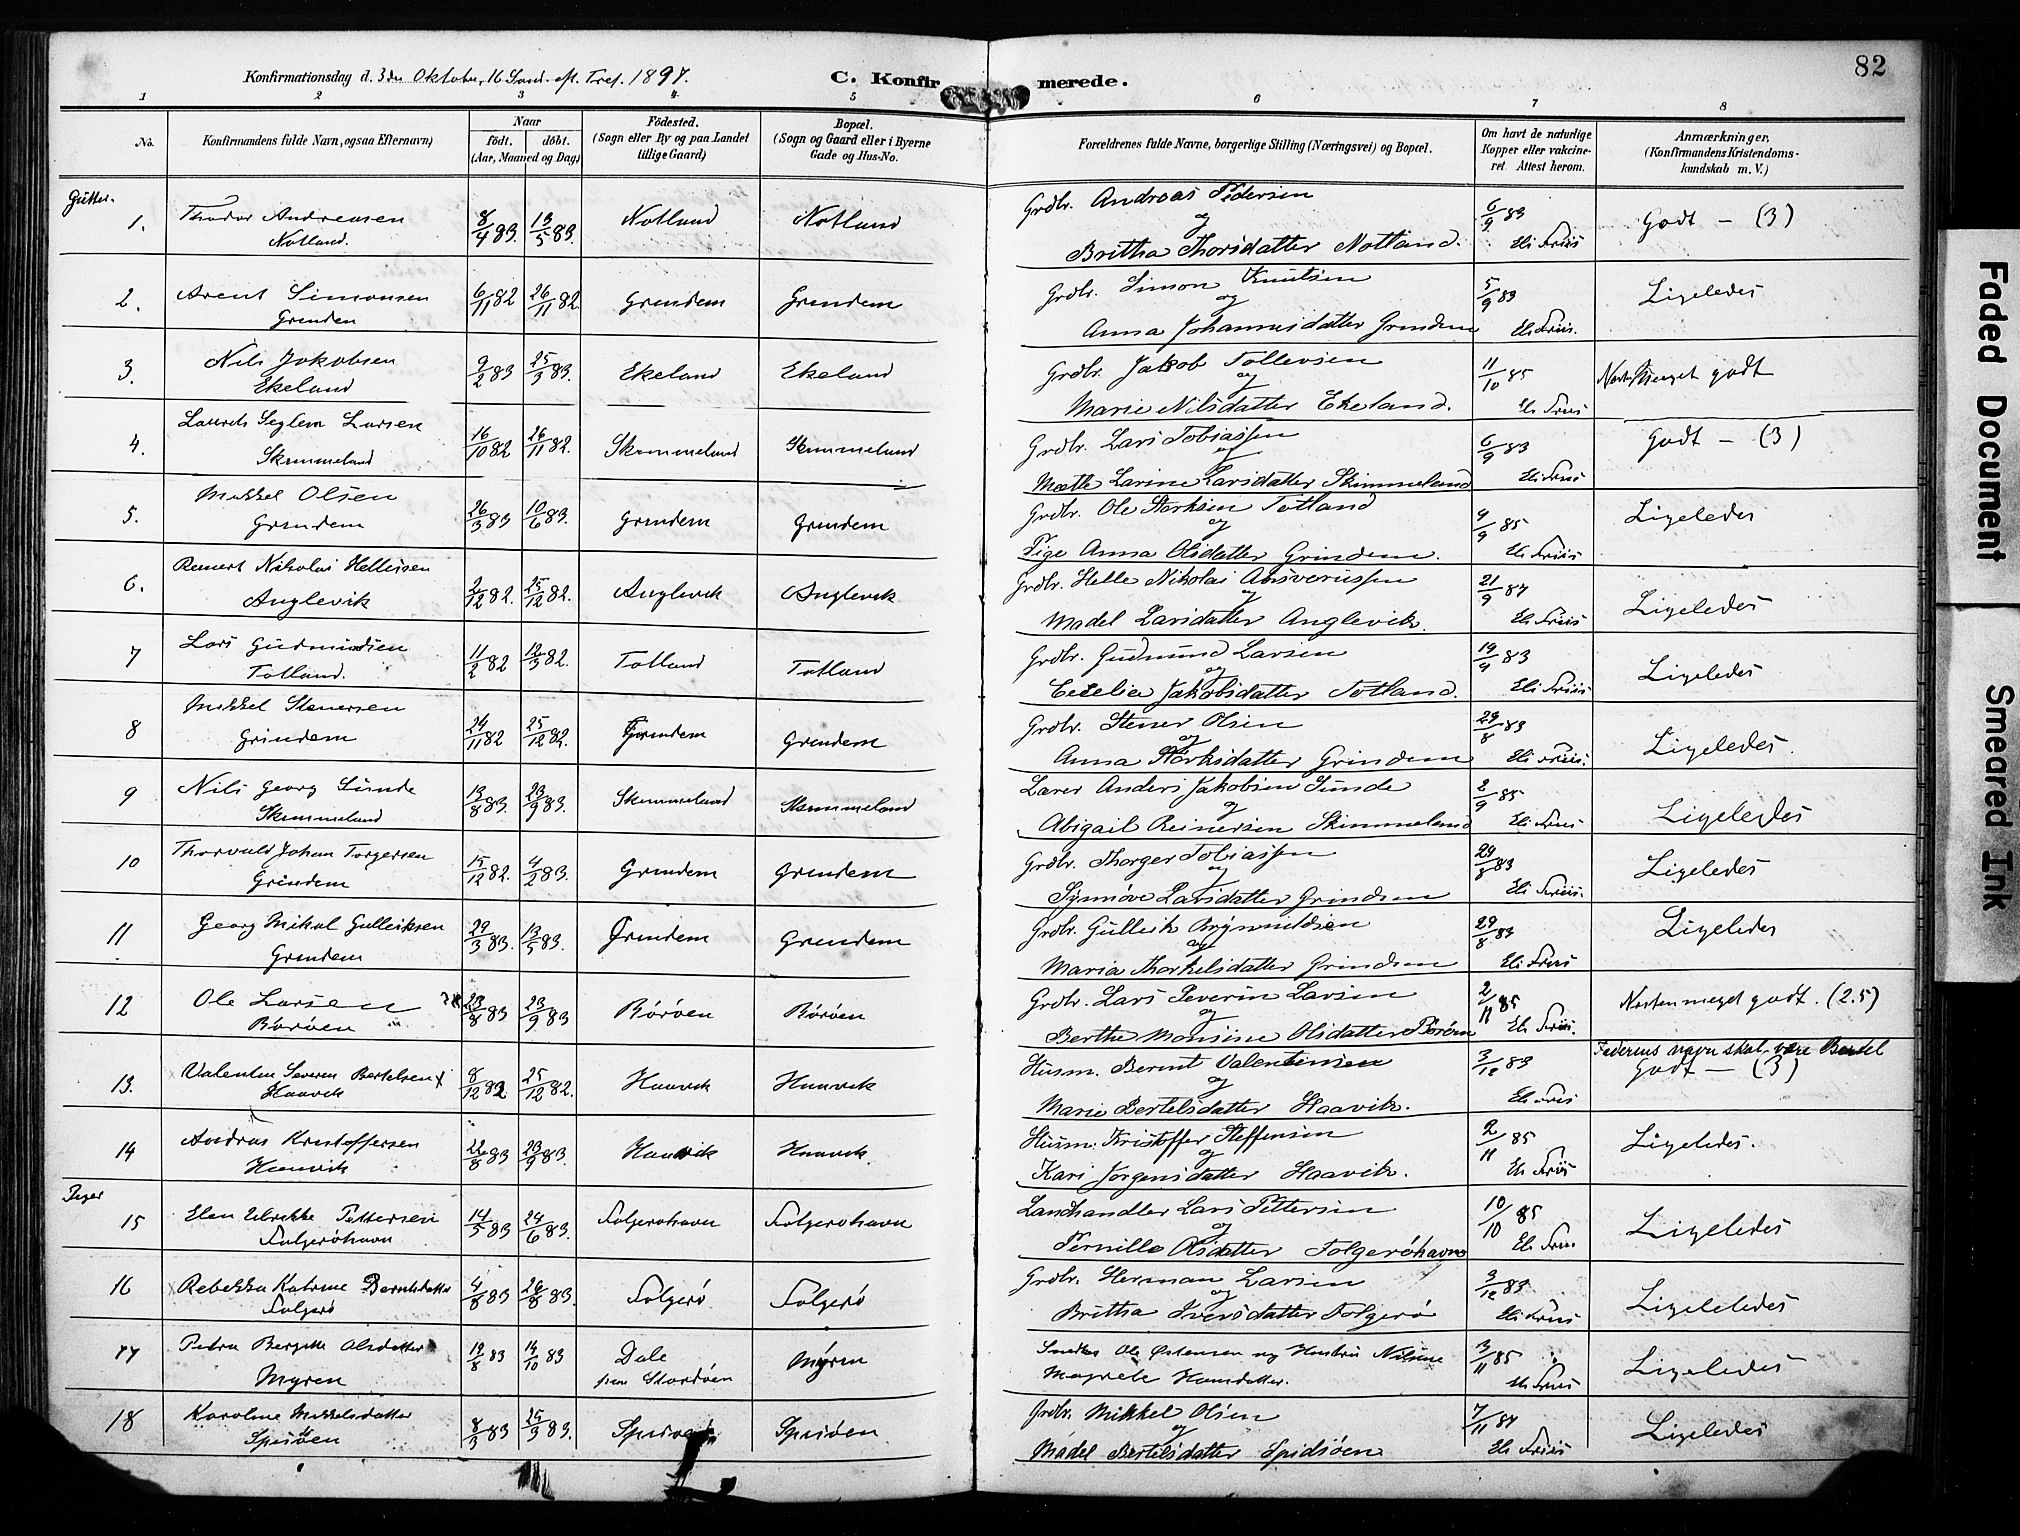 82
Konfirmationsdag d. 3die Oktober, 16 Sønd. eft. Tref. 1897.
C. Konfirmerede.
1 2 3 4 5 6 7 8
No.
Konfirmandens fulde Navn, ogsaa Efternavn)
Naar
født. døbt.
(Aar, Maaned og Dag)
Fødested.
(Sogn eller By og paa Landet
tillige Gaard)
Bopæl.
(Sogn og Gaard eller i Byerne
Gade og Hus-No.
Forældrenes fulde Navne, borgerlige Stilling (Næringsvei) og Bopæl.
Om havt de naturlige
Kopper eller vakcine-
ret. Attest herom.
Anmærkninger,
(Konfirmandens Kristendoms-
kundskab m. V.)
Gutter.
1. Thodor Andreasen Notland. 8/4 83. 13/5 83. Notland Notland Grdbr. Andreas Pedersen og 6/9 83 Godt – (3)
Brittha Thorsdatter Notland. Eli Friis
2. Arent Simonsen Grinden 6/11 82 26/11 82 Grindem Grindem Grdbr. Simon Knutsen og 5/9 83 Ligeledes
Anna Johannesdatter Grindem Eli Friis.
3. Nils Jakobsen Ekeland 9/2 83 25/3 83. Ekeland Ekeland Grdbr. Jakob Tollevsen og 11/10 85 Næsten Meget godt
Marie Nilsdatter Ekeland. Eli Friis
4. Laurits Seglem Larsen Skimmeland 16/10 82 26/11 82. Skimmeland Skimmeland Grdbr. Lars Tobiassen og 6/9 83 Godt – (3)
Mætte Larine Larsdatter Skimmeland Eli Friis
5. Mikkel Olsen Grindem 26/3 83 10/6 83. Grindem Grindem Grdbr. Ole Størksen Totland og 9/9 85 Ligeledes
Pige Anna Olsdatter Grindem. Eli Friis
6. Reinert Nikolai Hellesen Anglevik 2/12 82. 25/12 82. Anglevik Anglevik Grdbr. Helle Nikolai Ansverussen og 21/9 87 Ligeledes
Madel Larsdatter Anglevik. Eli Friis
7 Lars Gudmundsen Totland. 11/2 82 12/3 82. Totland Totland Grdbr. Gudmund Larsen og 19/9 83 Ligeledes
Cecelia Jakobsdatter Totland. Eli Friis
8 Mikkel Stenersen Grindem 24/11 82 25/12 82. Grindem Grindem Grdbr. Stener Olsen og 29/8 83 Ligeledes.
Anna Størksdatter Grindem Eli Friis.
9 Nils Georg Sunde Skimmeland 13/8 83. 23/9 83. Skimmeland Skimmeland Lærer Anders Jakobsen Sunde og 2/9 85 Ligeledes
Abigail Reinersen Skimmeland Eli Friis
10 Thorvald Johan Torgersen Grindem 15/12 82. 4/2 83. Grindem Grindem Grdbr. Thorger Tobiassen og 29/8 83 Ligeledes
Synnøve Larsdatter Grindem Eli Friis.
11 Georg Mikal Gulleiksen Grindem 29/3 83. 13/5 83. Grindem Grindem Grdbr. Gulleik Brynnildsen og 29/8 83 Ligeledes
Maria Thorkelsdatter Grindem Eli Friis
12 Ole Larsen Børøen 23/8 83 23/9 83 Børøen Børøen Grdbr. Lars Severin Larsen og 2/11 85 Næsten meget godt. (2.5)
Berthe Monsine Olsdatter Børøen Eli Friis.
13. Valentin Severin Bertelsen x Haavik 8/12 82 25/12 82. Haavik Haavik Husm. Bernt Valentinsen og 3/12 83 Faderens navn skal være Bertel
Godt – (3)
Marie Bertelsdatter Haavik. Eli Friis
14 Andreas Kristoffersen Haavik 22/8 83 23/9 83. Haavik Haavik. Husm. Kristoffer Steffensen og 2/11 85 Ligeledes.
Kari Jørgensdatter Haavik. Eli Friis
Piger
15 Elen Ulrikke Pettersen Folgerøhavn 14/5 83 24/6 83. Folgerøhavn Folgerøhavn Landhandler Lars Pettersen og 10/10 85 Ligeledes
Pernille Olsdatter Folgerøhavn Eli Friis
16 Rebekka Katrine Berntsdatter Folgerø 4/8 83 26/8 83. Folgerø Folgerø Grdbr. Herman Larsen og 3/12 83 Ligeledes
Brittha Iversdatter Folgerø Eli Friis
17 Petra Bergitte Olsdatter Myren 19/8 83 14/10 83 Dale paa Stordøen Myren Smeden Ole Østensen og Hustru Nilsine 3/11 85 Ligeledes
Magrete Hansdatter. Eli Friis
18 Karoline Mikkelsdatter Spisøen 8/3 83 25/3 83. Spisøen Spisøen Grdbr. Mikkel Olsen og 7/11 87 Ligeledes
Madel Bertelsdatter Spidsøen Eli Friis
Faded Document
Smeared Ink